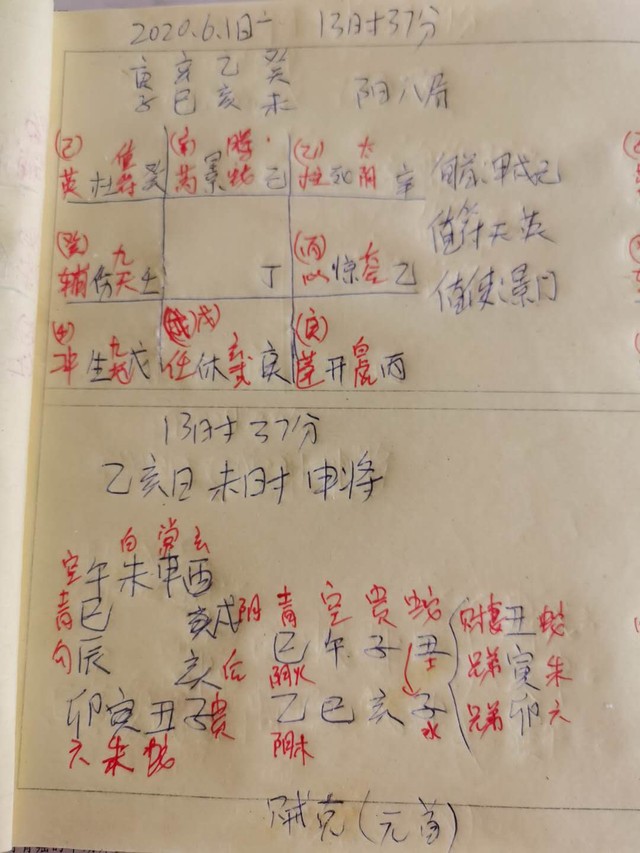 2020.6.1日一 13时37分
庚 辛 乙 癸
子 巳 亥 未 阳八局
(乙) 值 (丁) 腾 (己) 太
英 杜 符 癸 芮 景 蛇 己 柱 死 阴 辛 旬首:甲戌己
值符天英
(癸) 九 (丙)
辅 伤 天 壬 丁 心 惊 六合 乙 值使:景门
(壬) (戊) (庚)
冲 生 九地 戊 任 休 玄武 庚 蓬 开 白虎 丙
13时37分
乙亥日 未时 申将
白 常 玄
空 午 未 申 酉
青 巳 戌 阴 青 空 贵 蛇 财 丑 蛇
勾 辰 亥 后 巳 午 子 丑 兄弟 寅 朱
阴火
卯 寅 丑 子 贵 乙 巳 亥 子 兄弟 卯 六
六 朱 蛇 阴木 水
贼克(元首)